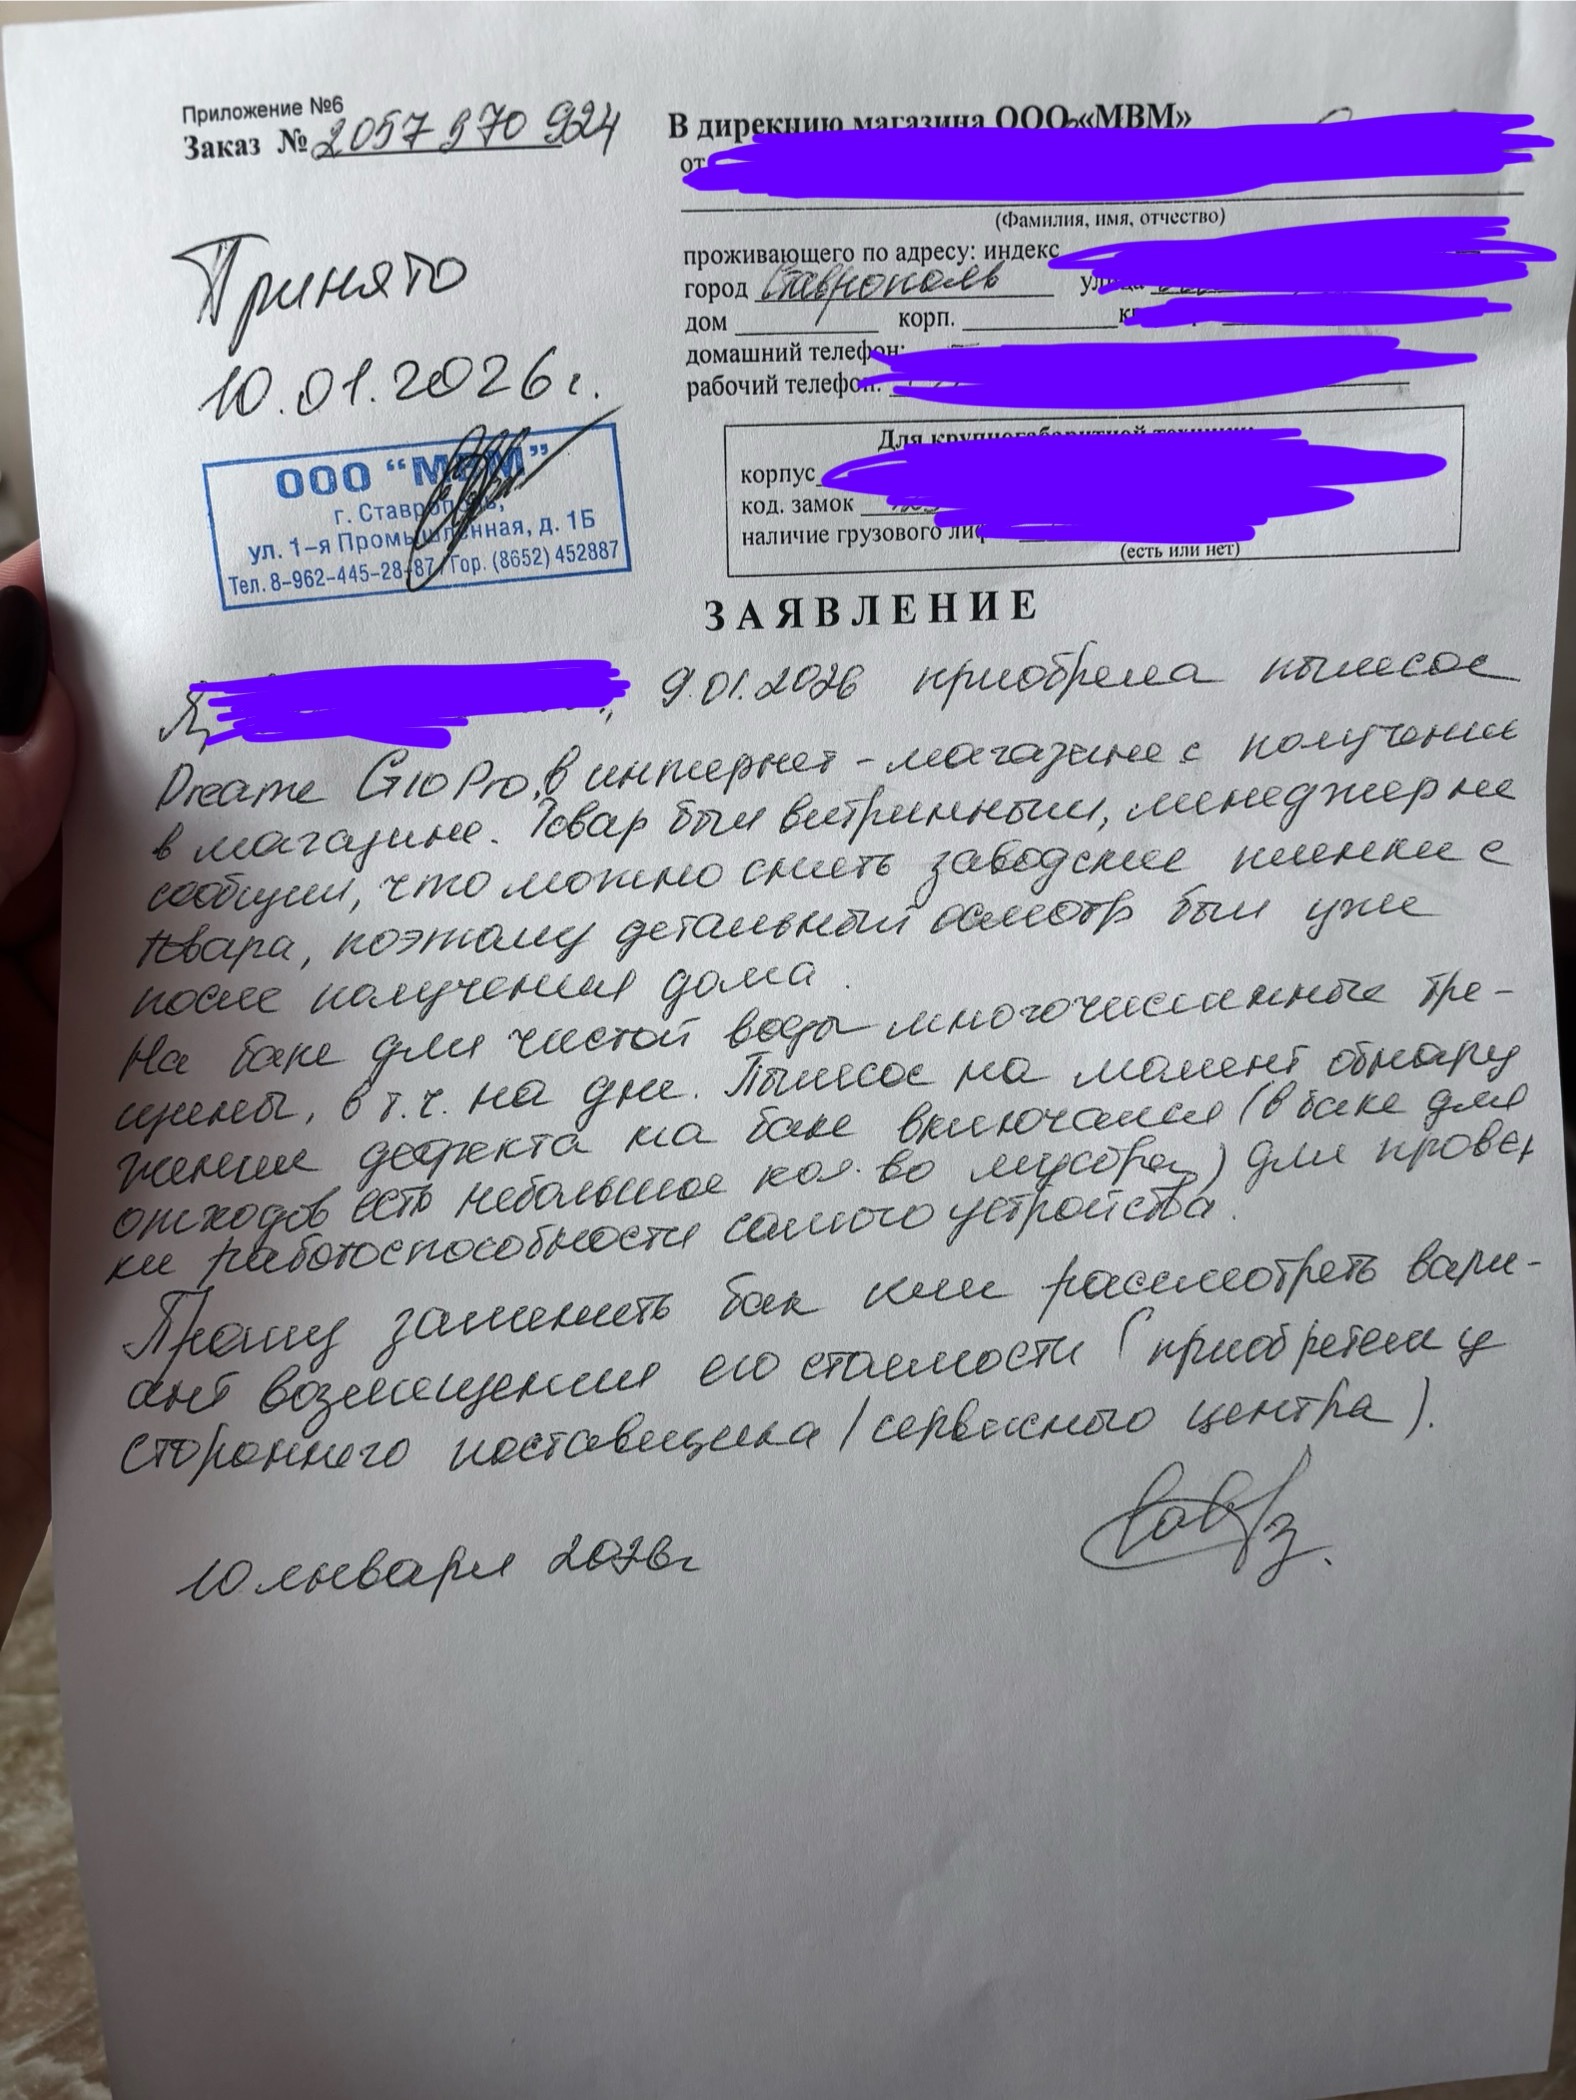 Приложение №6
Заказ № 2057 970 924
В дирекцию магазина ООО «МВМ»
от
(Фамилия, имя, отчество)
проживающего по адресу: индекс
город Ставрополь улица
дом корп.
домашний телефон:
рабочий телефон:
Принято
10.01.2026г.
ООО "МВМ"
г. Ставрополь,
ул. 1-я Промышленная, д. 1Б
Тел. 8-962-445-28-87 / Гор. (8652) 452887
Для крупногабаритной техники:
корпус
код. замок
наличие грузового лиф
(есть или нет)
ЗАЯВЛЕНИЕ
Я, 9.01.2026 приобрела пылесос
Dreame G10 Pro, в интернет-магазине с получением
в магазине. Товар был витринным, менеджер не
сообщил, что можно снять заводские пленки с
товара, поэтому детальный осмотр был уже
после получения дома.
На баке для чистой воды многочисленные тре-
щины, в т.ч. на дне. Пылесос на момент обнару
жения дефекта на баке включался (в баке для
отходов есть небольшое кол-во мусора) для провер
ки работоспособности самого устройства.
Прошу заменить бак или рассмотреть вари-
ант возмещения его стоимости (приобретем у
стороннего поставщика / сервисного центра).
10 января 2026г